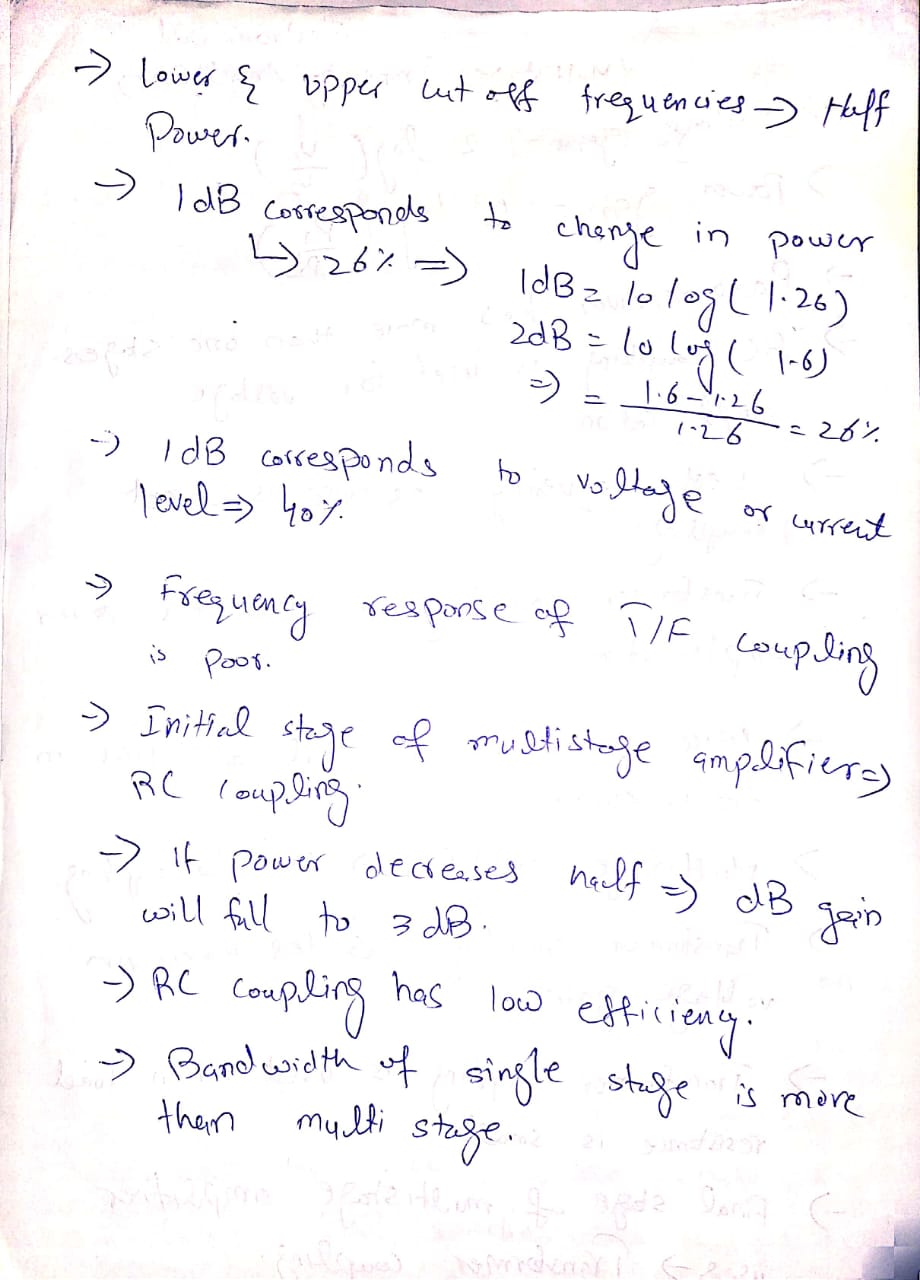 → Lower & upper cut off frequencies → Half
Power.
→ 1dB corresponds to change in power
↳ 26% ⇒ 1dB = 10 log (1.26)
2dB = 10 log (1.6)
⇒ = 1.6-1.26 / 1.26 = 26%
→ 1dB corresponds to voltage or current
level ⇒ 40%.
→ Frequency response of T/F coupling
is poor.
→ Initial stage of multistage amplifier ⇒
RC coupling.
→ If power decreases half ⇒ dB gain
will fall to 3 dB.
→ RC coupling has low efficiency.
→ Bandwidth of single stage is more
than multi stage.